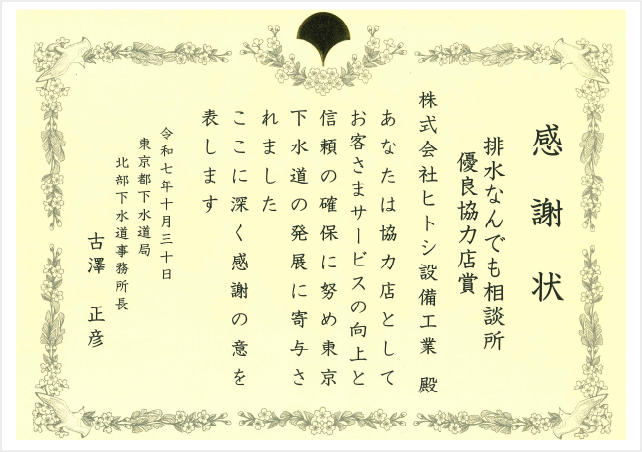 感謝状
排水なんでも相談所
優良協力店賞
株式会社ヒトシ設備工業 殿
あなたは協力店として
お客さまサービスの向上と
信頼の確保に努め東京
下水道の発展に寄与さ
れました
ここに深く感謝の意を
表します
令和七年十月三十日
東京都下水道局
北部下水道事務所長
古澤 正彦